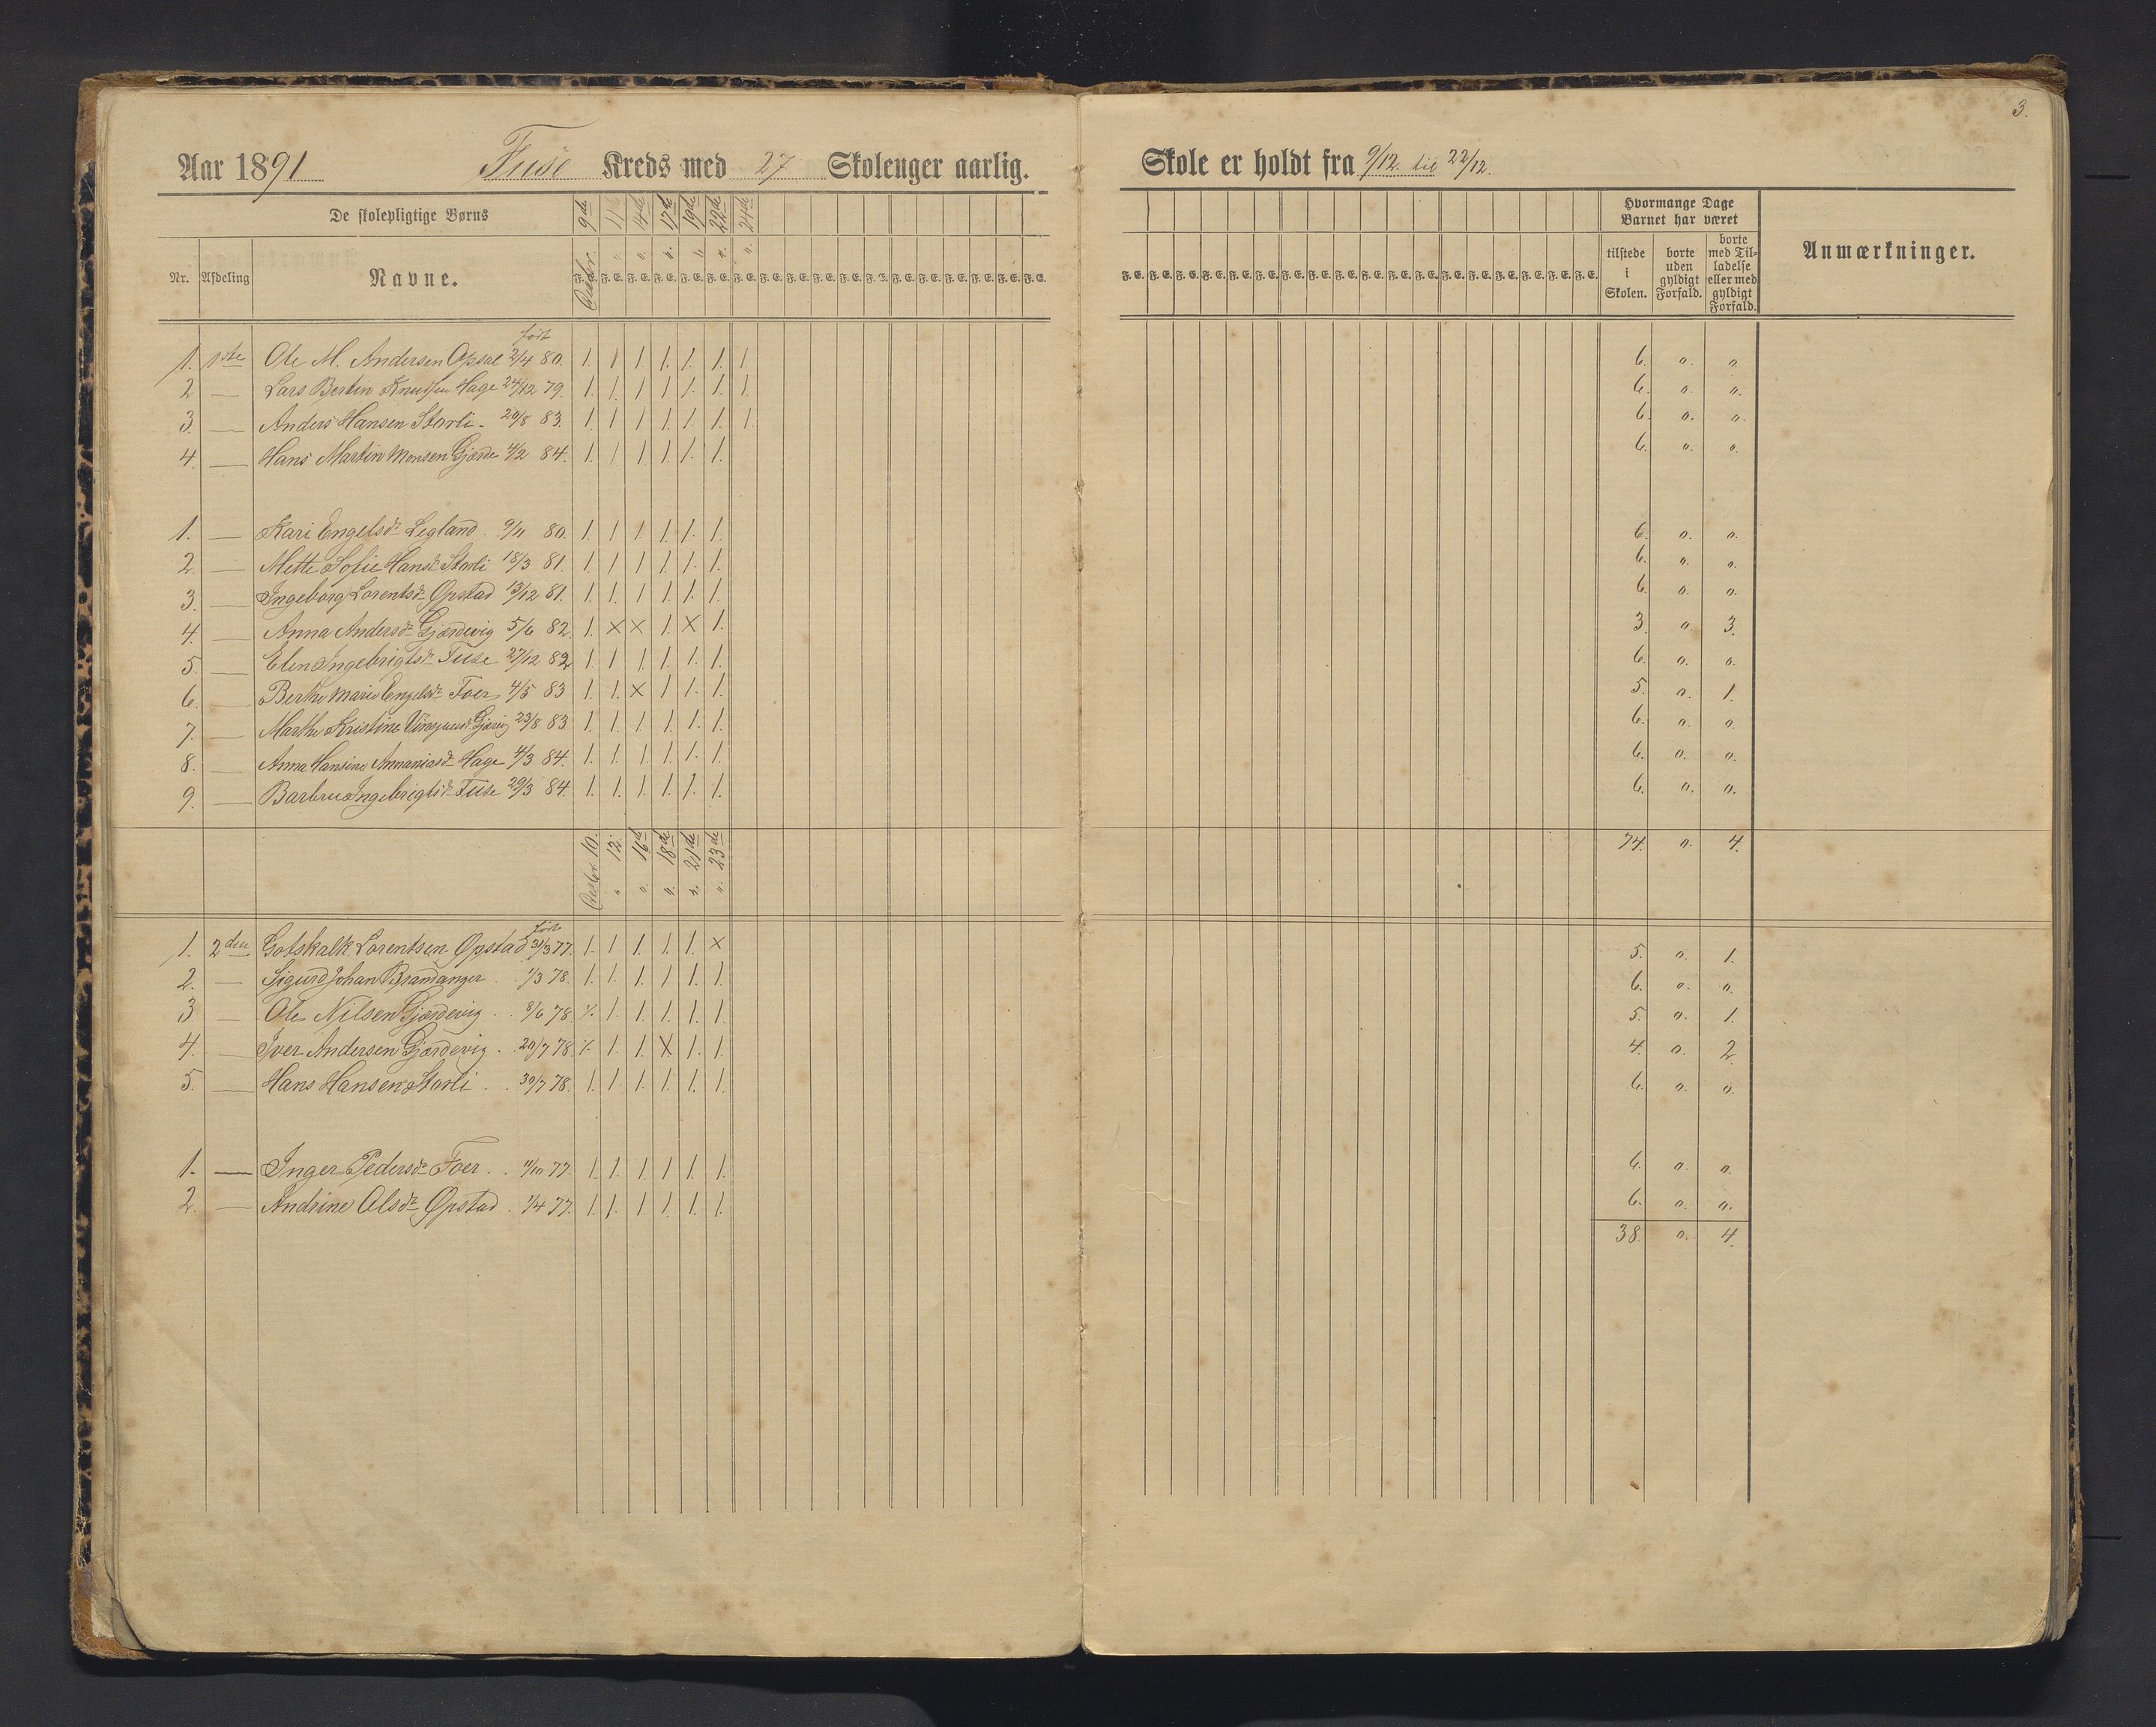 3.
Aar 1891 Fuse Kreds med 27 Skolenger aarlig. Skole er holdt fra 9/12. til 22/12.
De skolepligtige Børns 9de 11 14de 17de 19de 22de 24de
Hvormange Dage Barnet har været
Nr. Afdeling Navne. F. E. F. E. F. E. F. E. F. E. F. E. F. E. F. E. F. E. F. E. F. E. F. E. F. E. F. E. F. E. F. E. F. E. F. E.
F. E. F. E. F. E. F. E. F. E. F. E. F. E. F. E. F. E. F. E. F. E. F. E. F. E. F. E. F. E. F. E. F. E. F. E.
tilstede i Skolen. borte uden gyldigt Forfald. borte med Tilladelse eller med gyldigt Forfald. Anmærkninger.
født
1. 1ste Ole M. Andersen Opsal 2/4 80. 1. 1 1 1. 1. 1. 1. 6. " "
2 — Lars Bertin Knudsen Hage 24/12 79. 1. 1. 1 1. 1. 1. 1. 6. " "
3. — Anders Hansen Storli - 20/8 83. 1. 1 1 1. 1. 1. 1. 6. " "
4. — Hans Martin Monsen Gjærde 4/2 84. 1. 1 1. 1. 1. 1. 6. " "
1. — Kari Engelsdr Legland 9/11 80. 1. 1 1 1. 1. 1. 6. " "
2. — Mette Sofie Hansdr Storli 18/3 81. 1. 1 1 1. 1. 1. 6. " "
3. — Ingeborg Lorentsdr Opstad 13/12 81. 1. 1. 1. 1. 1. 1. 6. " "
4. — Anna Andersdr Gjærdevig 5/6 82. 1. X X 1. X 1. 3. " 3.
5 — Elen Ingebrigtsdr Fuse 27/12 82 1. 1 1. 1. 1. 1. 6. " "
6. — Berthe Marie Engelsdr Foer 4/5 83 1. 1. X 1 1. 1. 5. " 1.
7. — Marthe Kristine 23/8 83. 1. 1. 1. 1. 1. 1. 6. " "
8. — Anna Hansine Annaniasdr Hage 4/3 84. 1. 1. 1. 1. 1. 1. 6. " "
9. — Barbru Ingebrigtsdr Fuse 29/3 84. 1. 1. 1. 1. 1. 1. 6. " "
10. 12. 16de 18de 21de 23de 74. " 4.
født
1. 2den Gotskalk Lorentsen Opstad 31/3 77. 1. 1 1. 1. 1. X 5. " 1.
2. — Sigurd Johan Brandanger 1/3 78. 1. 1. 1. 1 1. 1. 6. " "
3 — Ole Nilsen Gjærdevig 8/6 78. 1. 1. 1. 1. 1. 5. " 1.
4. — Iver Andersen Gjærdevig 20/7 78. 1. 1. X 1. 1. 4. " 2.
5. — Hans Hansen Storli 30/7 78. 1. 1. 1. 1. 1. 1. 6. " "
1. — Inger Pedersdr Foer 11/10 77. 1. 1. 1. 1. 1. 1. 6. " "
2. — Andrine Olsdr Opstad 1/4 77. 1. 1. 1. 1. 1. 1. 6. " "
38. " 4.